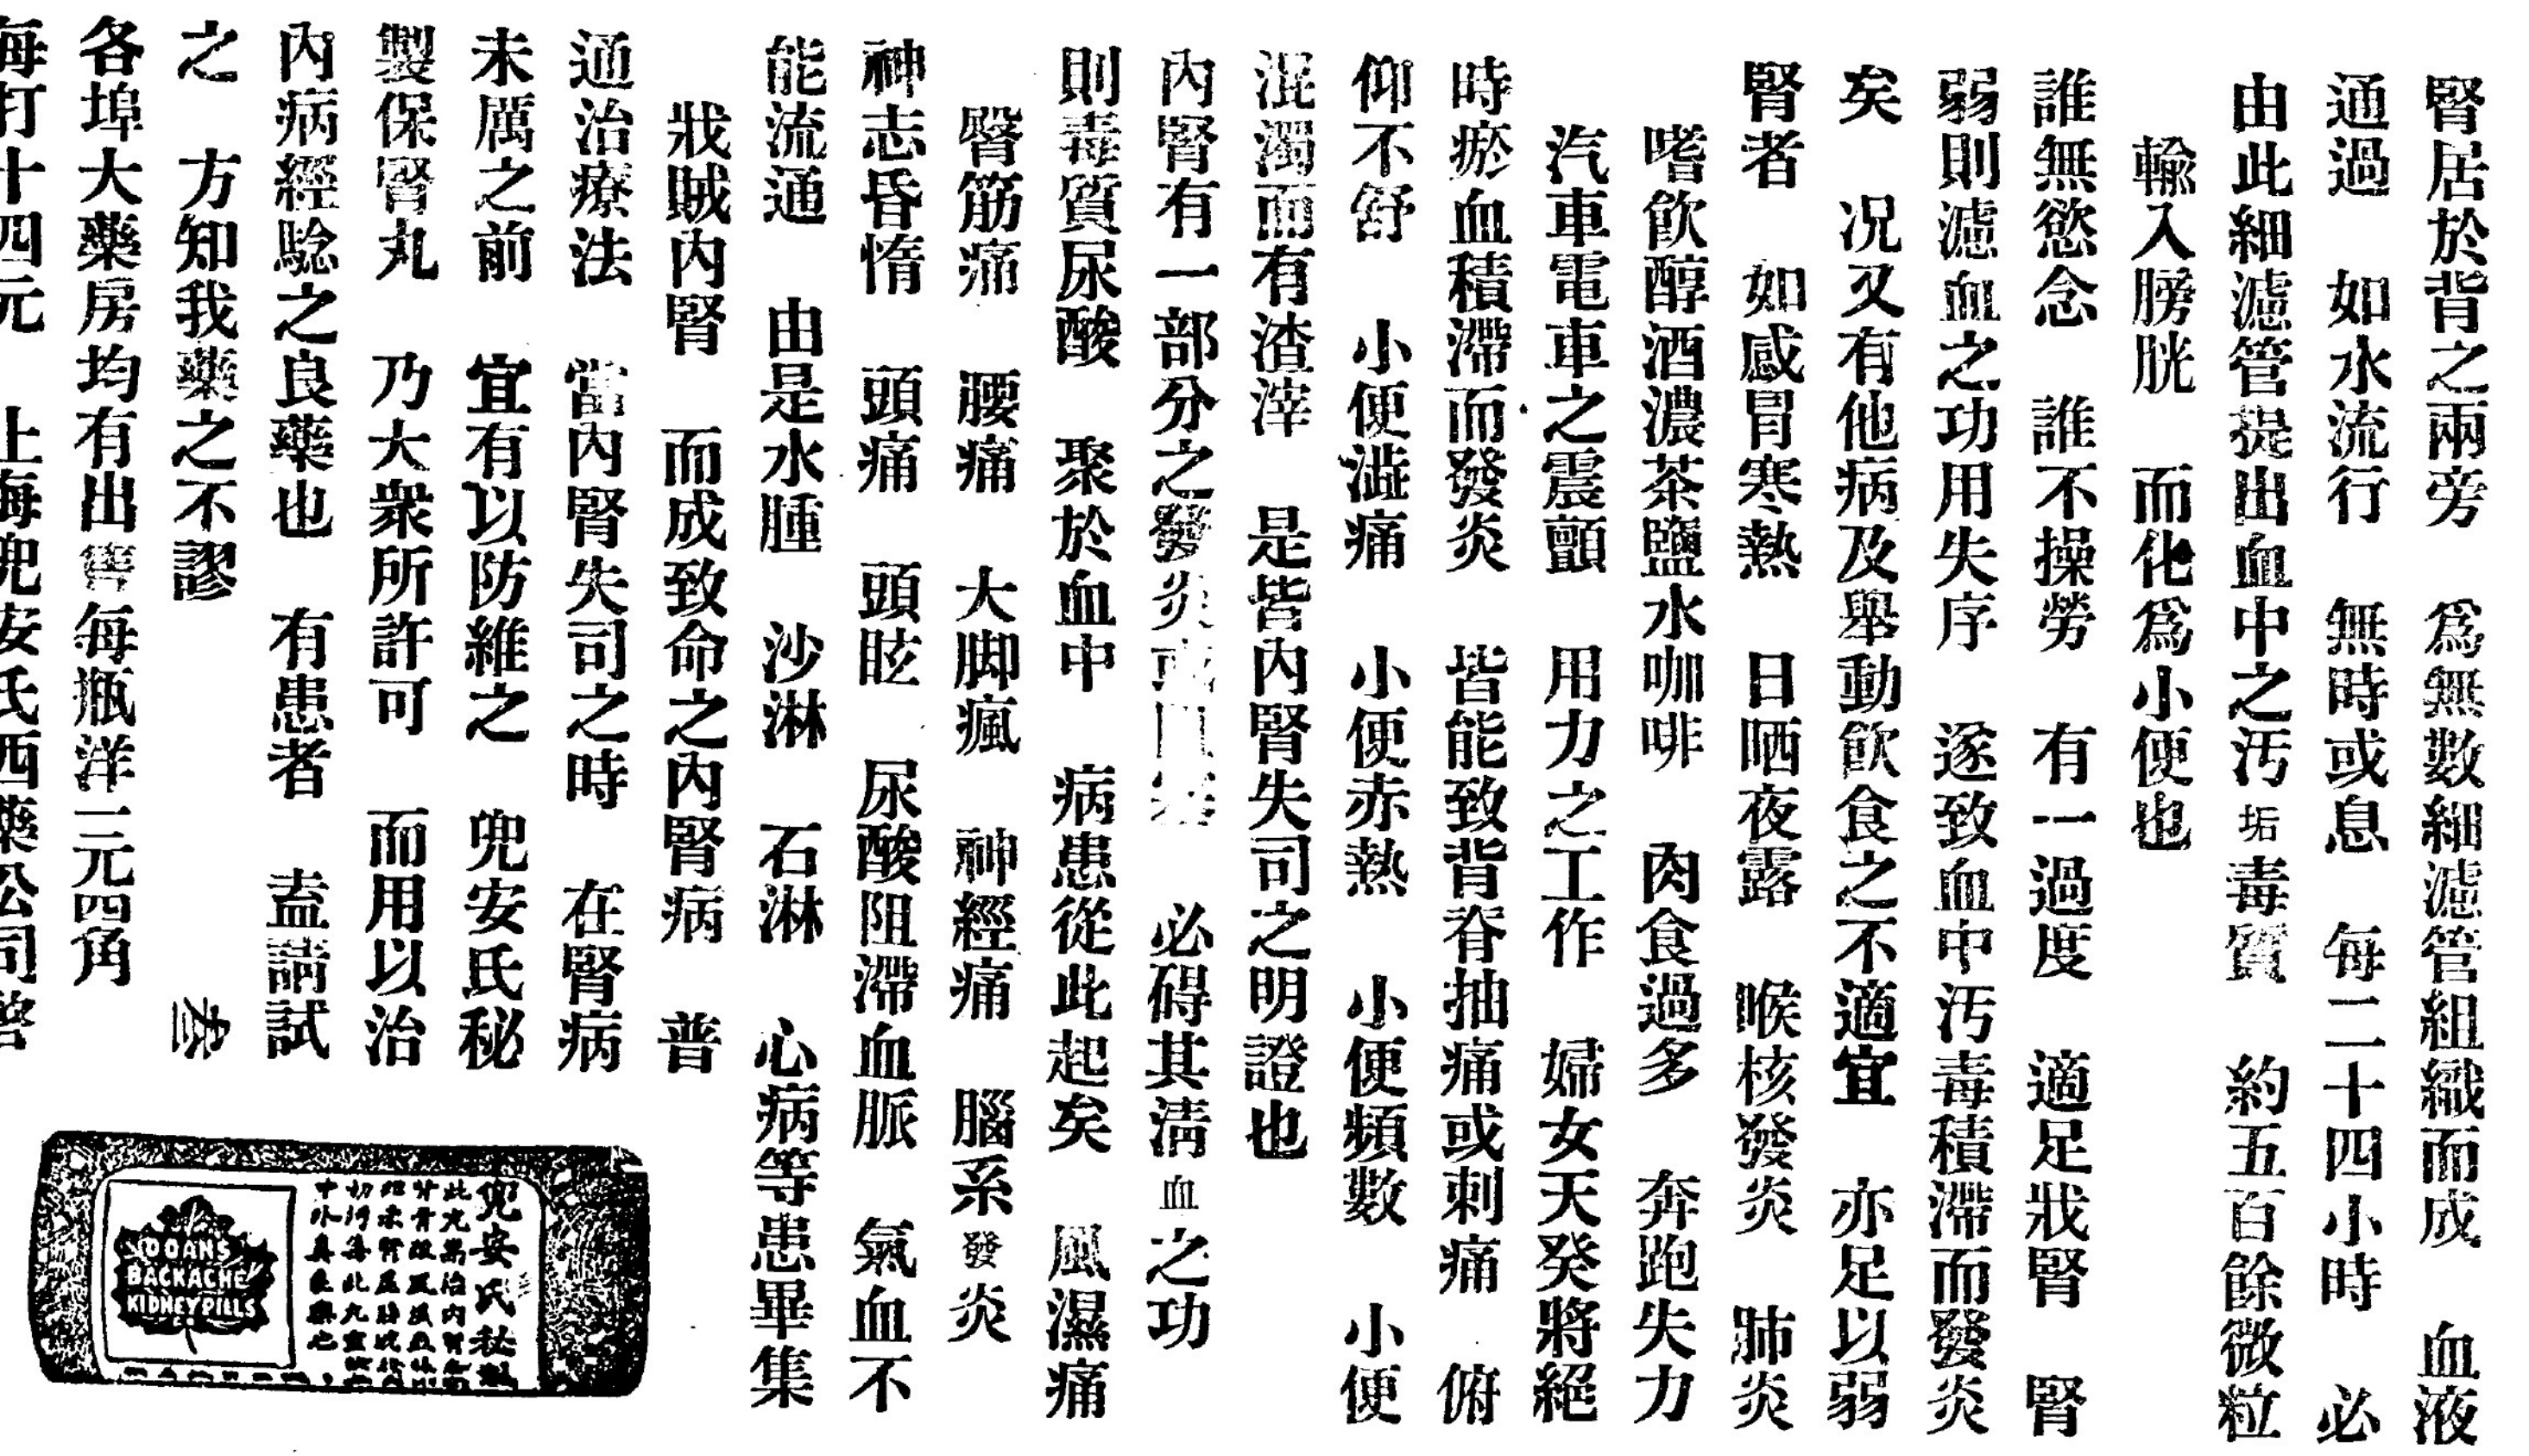 腎居於背之兩旁　爲無數細濾管組織而成　血液
通過　如水流行　無時或息　每二十四小時　必
由此細濾管提出血中之汚垢毒質　約五百餘微粒
輸入膀胱　而化爲小便也
誰無慾念　誰不操勞　有一過度　適足戕腎　腎
弱則濾血之功用失序　遂致血中汚毒積滯而發炎
矣　况又有他病及舉動飮食之不適宜　亦足以弱
腎者　如感冒寒熱　日晒夜露　喉核發炎　肺炎
嗜飮醇酒濃茶鹽水咖啡　肉食過多　奔跑失力
汽車電車之震顫　用力之工作　婦女天癸將絕
時瘀血積滯而發炎　皆能致背脊抽痛或刺痛　俯
仰不舒　小便澁痛　小便赤熱　小便頻數　小便
混濁而有渣滓　是皆內腎失司之明證也
內腎有一部分之發炎　必碍其淸血之功
則毒質尿酸　聚於血中　病患從此起矣　風濕痛
臀筋痛　腰痛　大脚瘋　神經痛　腦系發炎
神志昏惰　頭痛　頭眩　尿酸阻滯血脈　氣血不
能流通　由是水腫　沙淋　石淋　心病等患畢集
戕賊內腎　而成致命之內腎病　普
通治療法　當內腎失司之時　在腎病
未厲之前　宜有以防維之　兜安氏秘
製保腎丸　乃大衆所許可　而用以治
內病經騐之良藥也　有患者　盍請試
之　方知我藥之不謬
各埠大藥房均有出售每瓶洋一元四角
每打十四元　上海兜安氏西藥公司啓
兜安氏秘製
DOANS
BACKACHE
KIDNEY PILLS